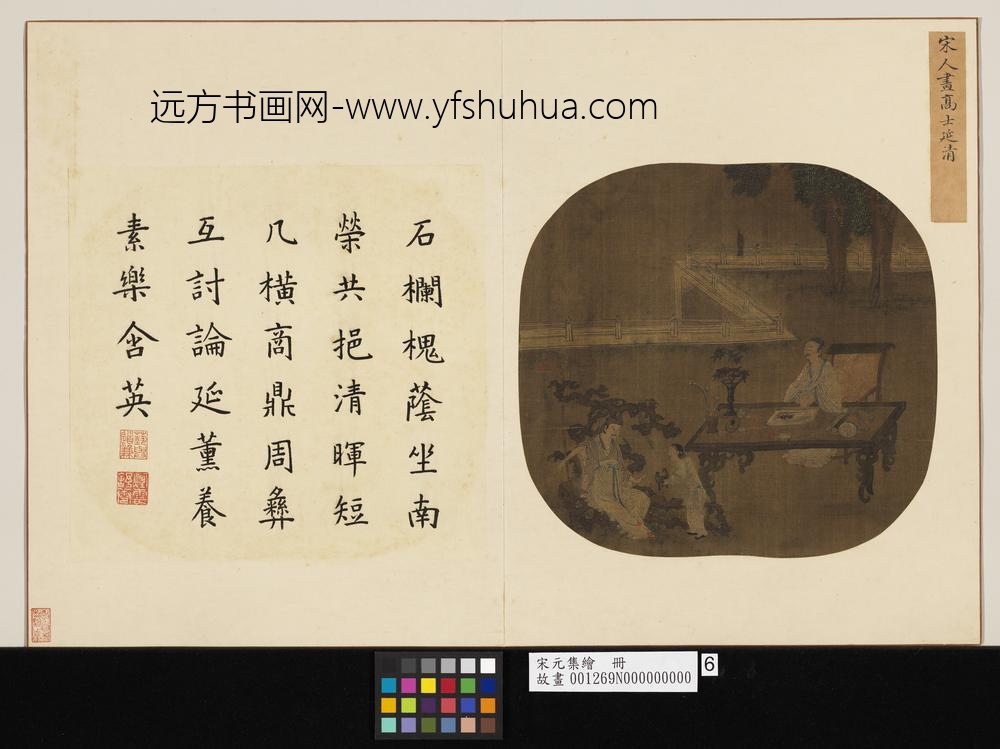 远方书画网-www.yfshuhua.com
宋人畫高士延清
石欄槐蔭坐南
榮共挹清暉短
几橫商鼎周彝
互討論延薰養
素樂含英
宋元集繪 冊
故畫001269N000000000
6